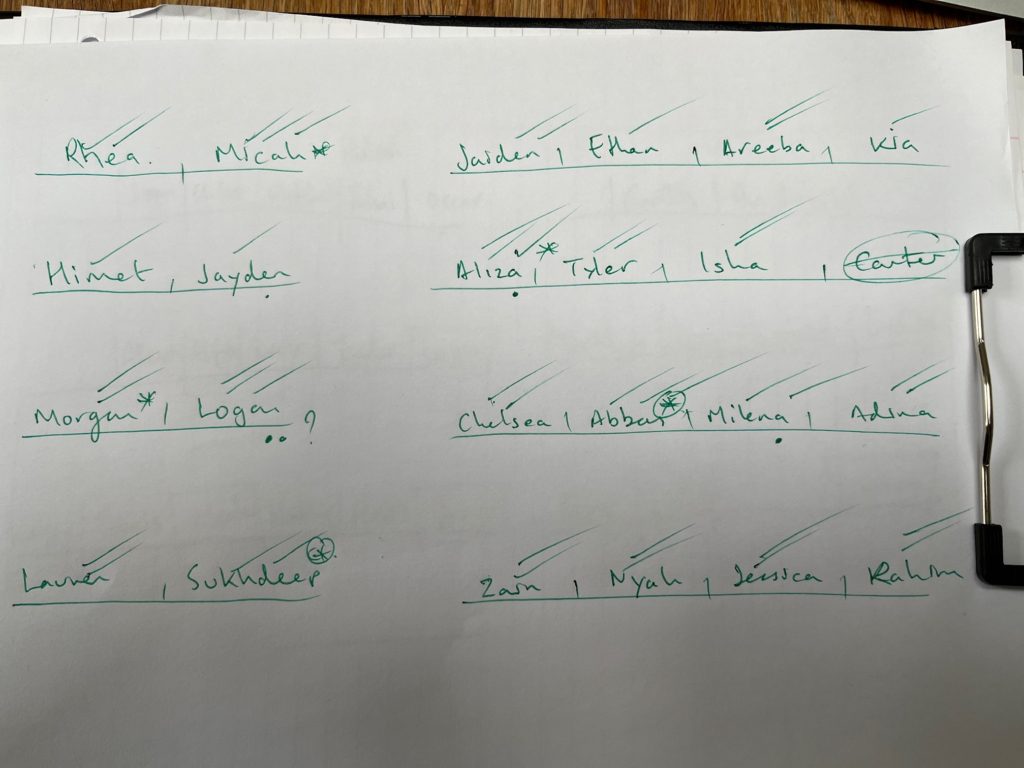 Rhea. , Micah* Jaiden, Ethan, Areeba, Kia
Himet, Jayden Aliza, * Tyler, Isha, Carter
Morgan*, Logan ? Chelsea, Abbas*, Milena, Adina
Lauren, Sukhdeep* Zain, Nyah, Jessica, Rahim